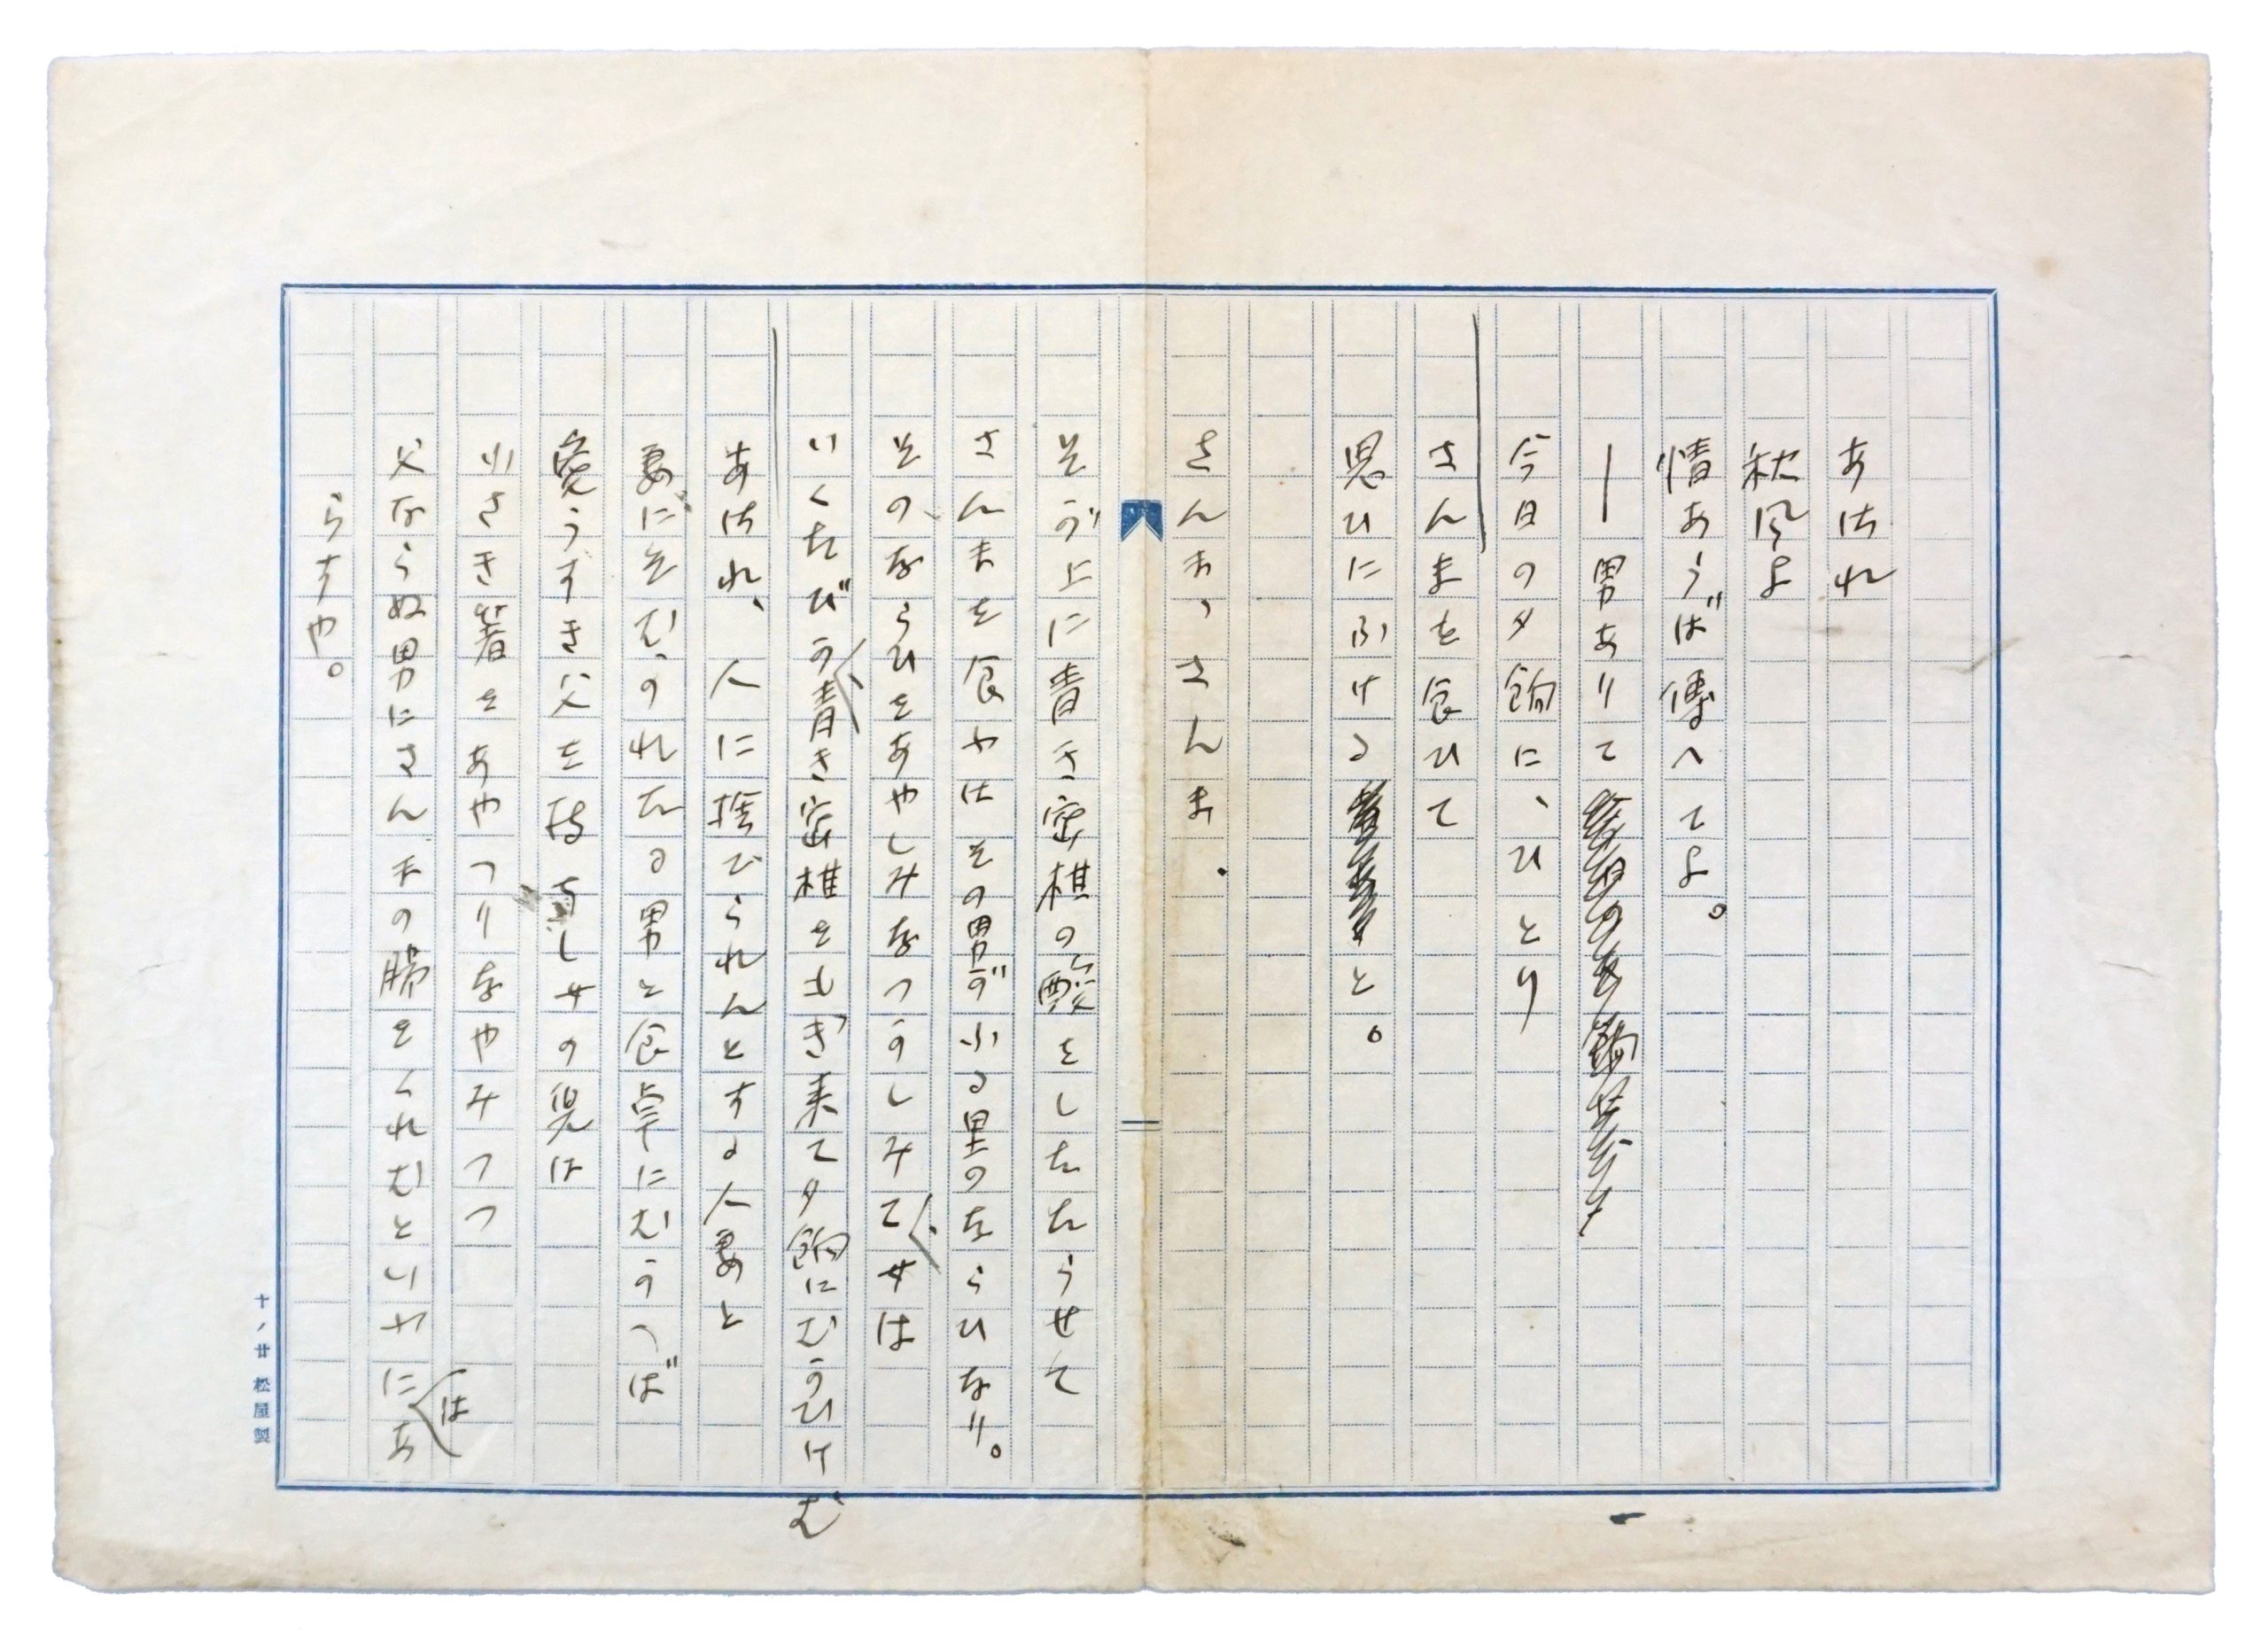 あはれ
秋風よ
情あらば傳へてよ。
――男ありて
今日の夕餉に、ひとり
さんまを食ひて
思ひにふけると。
さんま、さんま、
そが上に青き蜜柑の酸をしたたらせて
さんまを食ふはその男がふる里のならひなり。
そのならひをあやしみなつかしみて女は
いくたびか青き蜜柑をもぎ来て夕餉にむかひけむ
あはれ、人に捨てられんとする人妻と
妻にそむかれたる男と食卓にむかへば
愛うすき父を持ちし女の児は
小さき箸をあやつりなやみつつ
父ならぬ男にさんまの腸をくれむといふにはあ
らずや。
十ノ廿 松屋製